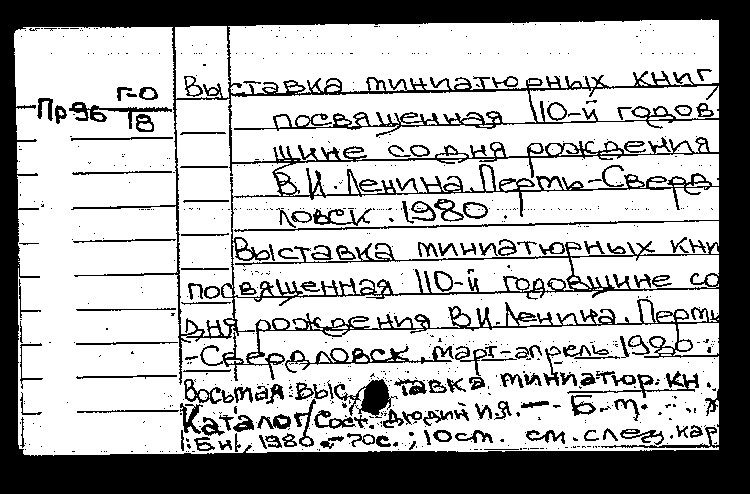 Выставка миниатюрных книг,
Пр96 Г-О/18
посвященная 110-й годов-
щине со дня рождения
В.И.Ленина. Пермь-Сверд-
ловск. 1980.
Выставка миниатюрных кни
посвященная 110-й годовщине со
дня рождения В.И.Ленина. Пермь
-Свердловск, март-апрель 1980:
Восьмая выставка миниатюр. кн.
Каталог/Сост. И.Я. — Б.м.
:Б.и., 1980.-70с.; 10см. см. след. кар